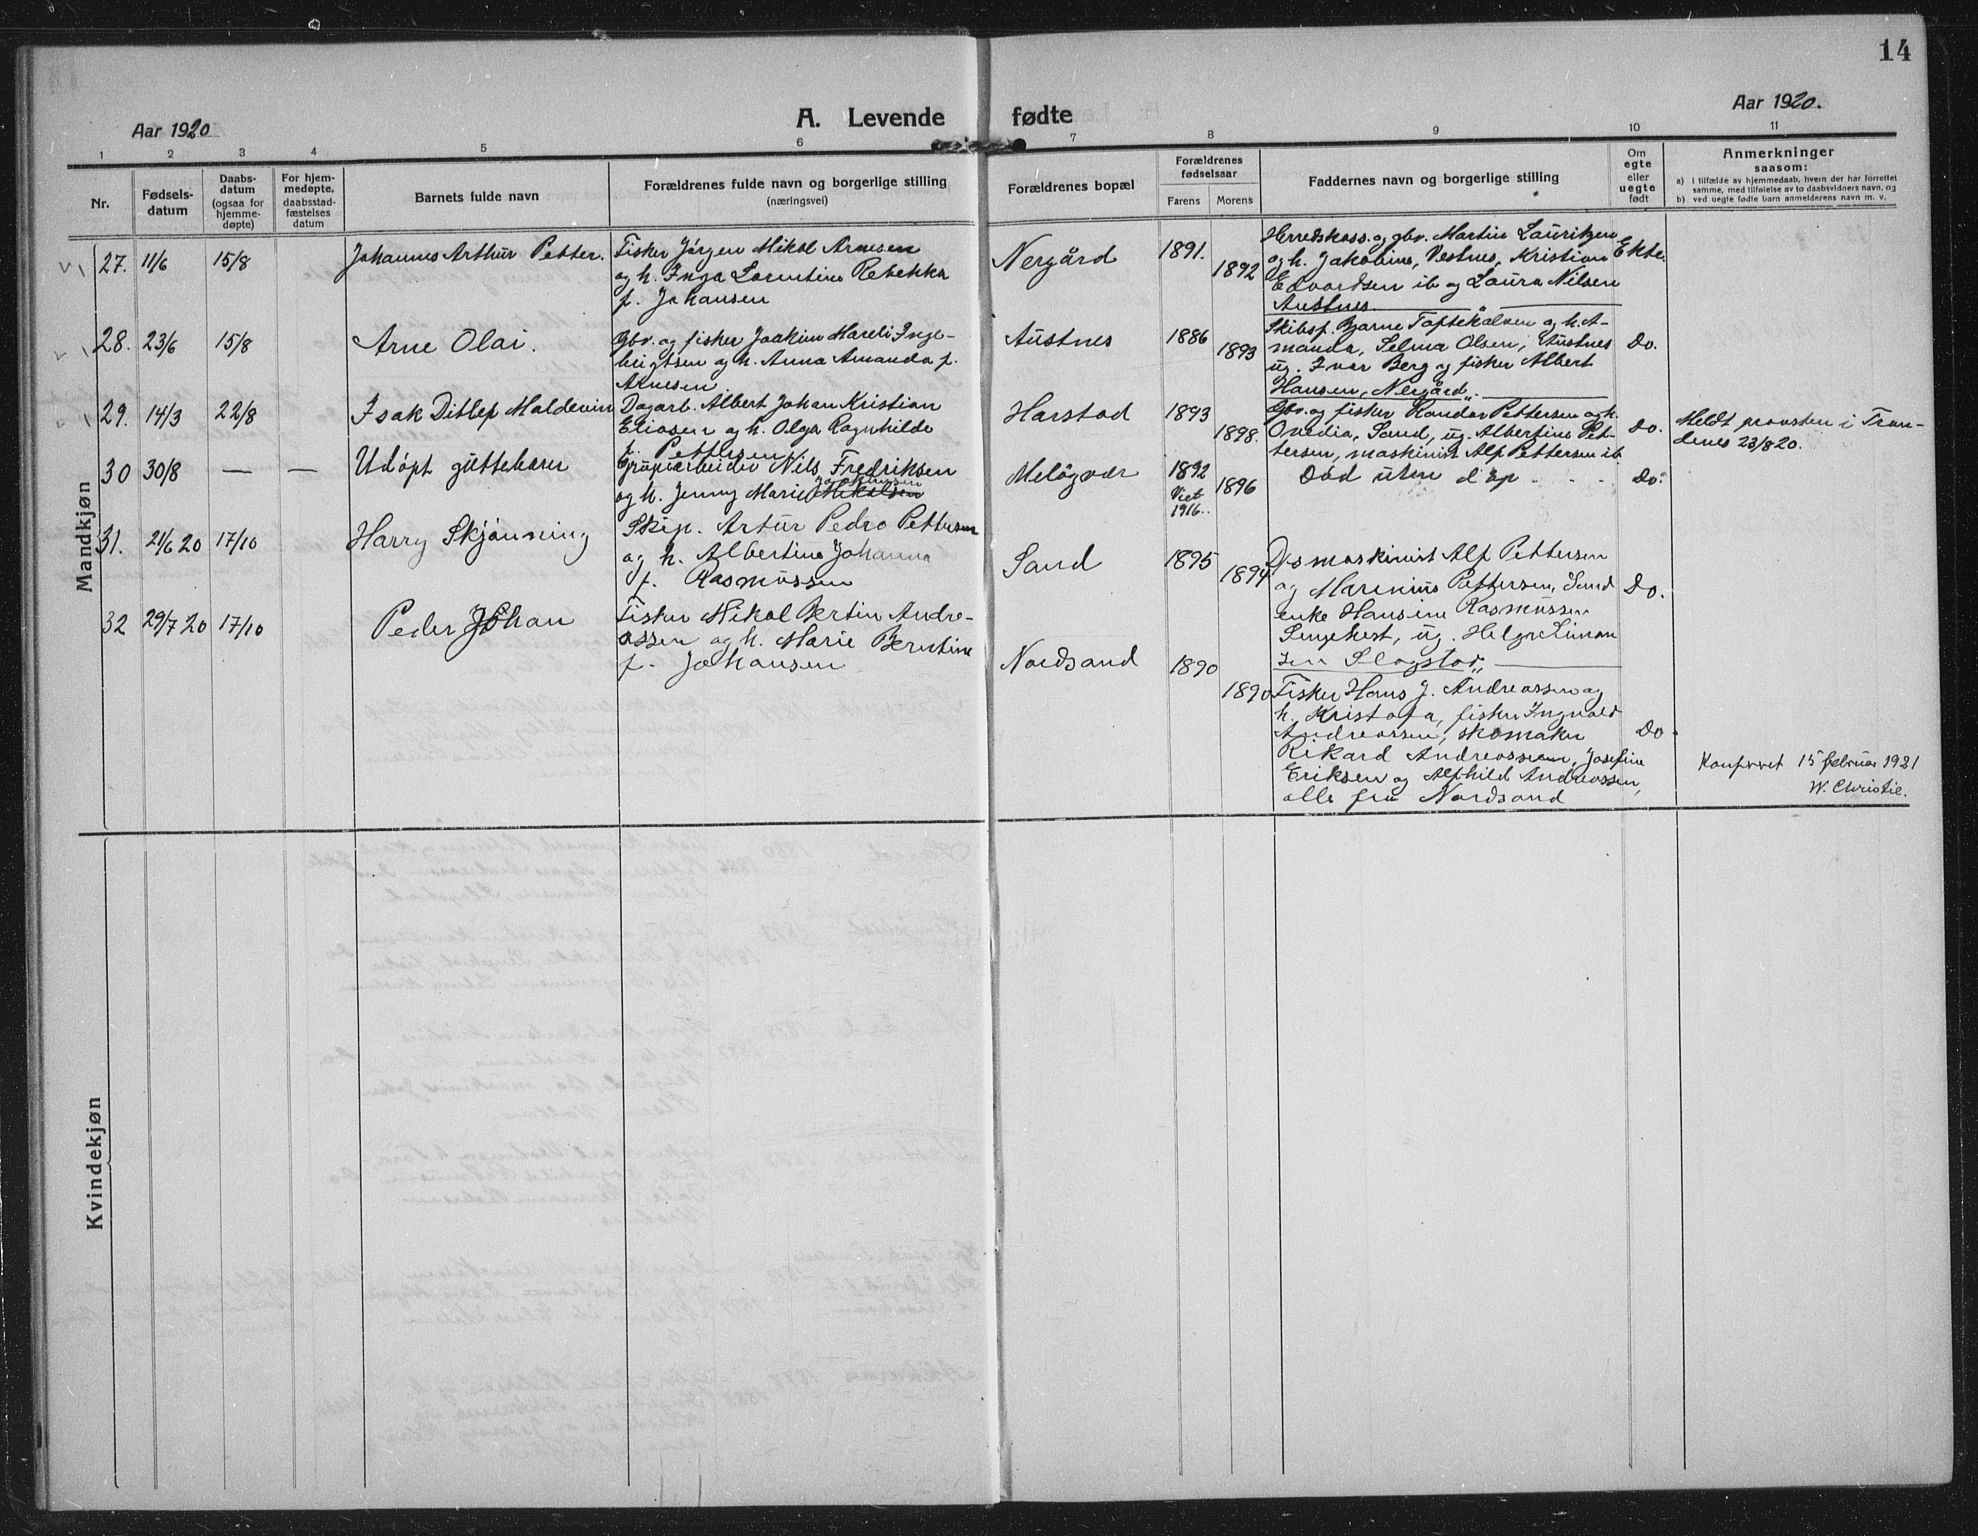 14
Aar 1920
A. Levende fødte
Aar 1920.
1 2 3 4 5 6 7 8 9 10 11
Nr.
Fødsels-
datum
Daabs-
datum
(ogsaa for
hjemme-
døpte)
For hjem-
medøpte,
daabsstad-
fæstelses
datum
Barnets fulde navn
Forældrenes fulde navn og borgerlige stilling
(næringsvei)
Forældrenes bopæl
Forældrenes
fødselsaar
Farens Morens
Faddernes navn og borgerlige stilling
Om
egte
eller
uegte
født
Anmerkninger
saasom:
a) i tilfælde av hjemmedaab, hvem der har forrettet
samme, med tilføielse av to daabsvidners navn, og
b) ved uegte fødte barn anmelderens navn m. v.
Mandkjøn
27. 11/6 15/8 Johannes Arthur Petter.
Fisker Jörgen Mikal Arnesen
og h. Inga Lorentine Rebekka
f. Johansen
Nergård 1891. 1892
Herredskass. og gbr. Martin Lauritzen
og h. Jakobine, Vestnes, Kristian
Edvardsen ib og Laura Nilsen
Austnes
Ekte.
28. 23/6 15/8 Arne Olai.
Gbr. og fisker Joakim Mareli Inge-
brigtsen og h. Anna Amanda f.
Arnesen
Austnes 1886 1893
Skibsf. Bjarne Toftekalven og h. A-
manda, Selma Olsen, Austnes
ug. Ivar Berg og fisker Albert
Hansen, Nergård
Do.
29. 14/3 22/8 Isak Ditlef Maldevin
Dagarb. Albert Johan Kristian
Eliasen og h. Olga Ragnhilde
f. Pettersen
Harstad 1893 1898.
Gbr. og fisker Kondor Pettersen og h.
Ovedia, Sand, ug. Albertine Pet-
tersen, maskinist Alf Pettersen ib.
Do.
Meldt prosten i Tron-
denes 23/8 20.
30 30/8 — — Udöpt guttebarn
Grubearbeider Nils Fredriksen
og h. Jenny Marie Mikalsen
Meløyvær 1892 1896
Viet
1916.
Död uten dåp - - -
Do.
31. 21/6 20 17/10 Harry Skjönning
Skip. Artur Pedro Pettersen
og h. Albertine Johanna
f. Rasmussen
Sand 1895 1894
Ds maskinist Alf Pettersen
og Marenius Pettersen, Sand
enke Hansine Rasmussen
Sengehest, ug. Helga Simon
sen Slagstad
Do.
32 29/7 20 17/10 Peder Johan
Fisker Mikal Bertin Andre-
assen og h. Marie Berntine
f. Johansen
Nordsand 1890 1890
Fisker Hans J. Andreassen og
h. Kristofa, fisker Ingvald
Andreassen, skomaker
Rikard Andreassen, Josefine
Eriksen og Alfhild Andreassen,
alle fra Nordsand
Do.
Konferert 15 februar 1921
W. Christie.
Kvindekjøn